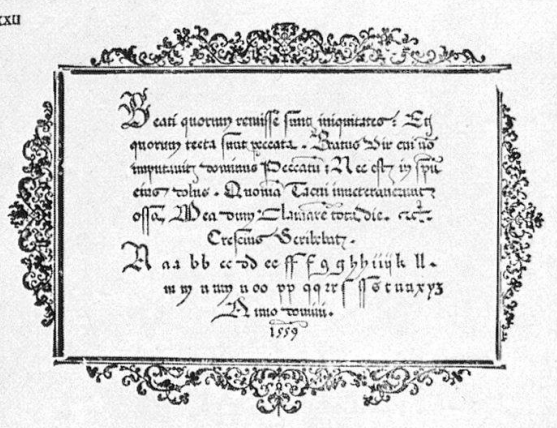 xxii
Beati quorum remissẽ sunt iniquitates: Et
quorum tecta sunt peccata. Beatus Vir cui nõ
imputavit dominus Peccatũ: Nec est in spũ
eius dolus. Quoniã Tacui inveteraverunt
ossa Mea dum Clamarẽ tota die. &c.
Crescius Scribebat.
A a a bb cc dd ee ff f g g h h i i j k ll.
m m n m n oo pp qq r r ſ ſſ s t u u x y z
Anno domini.
1559